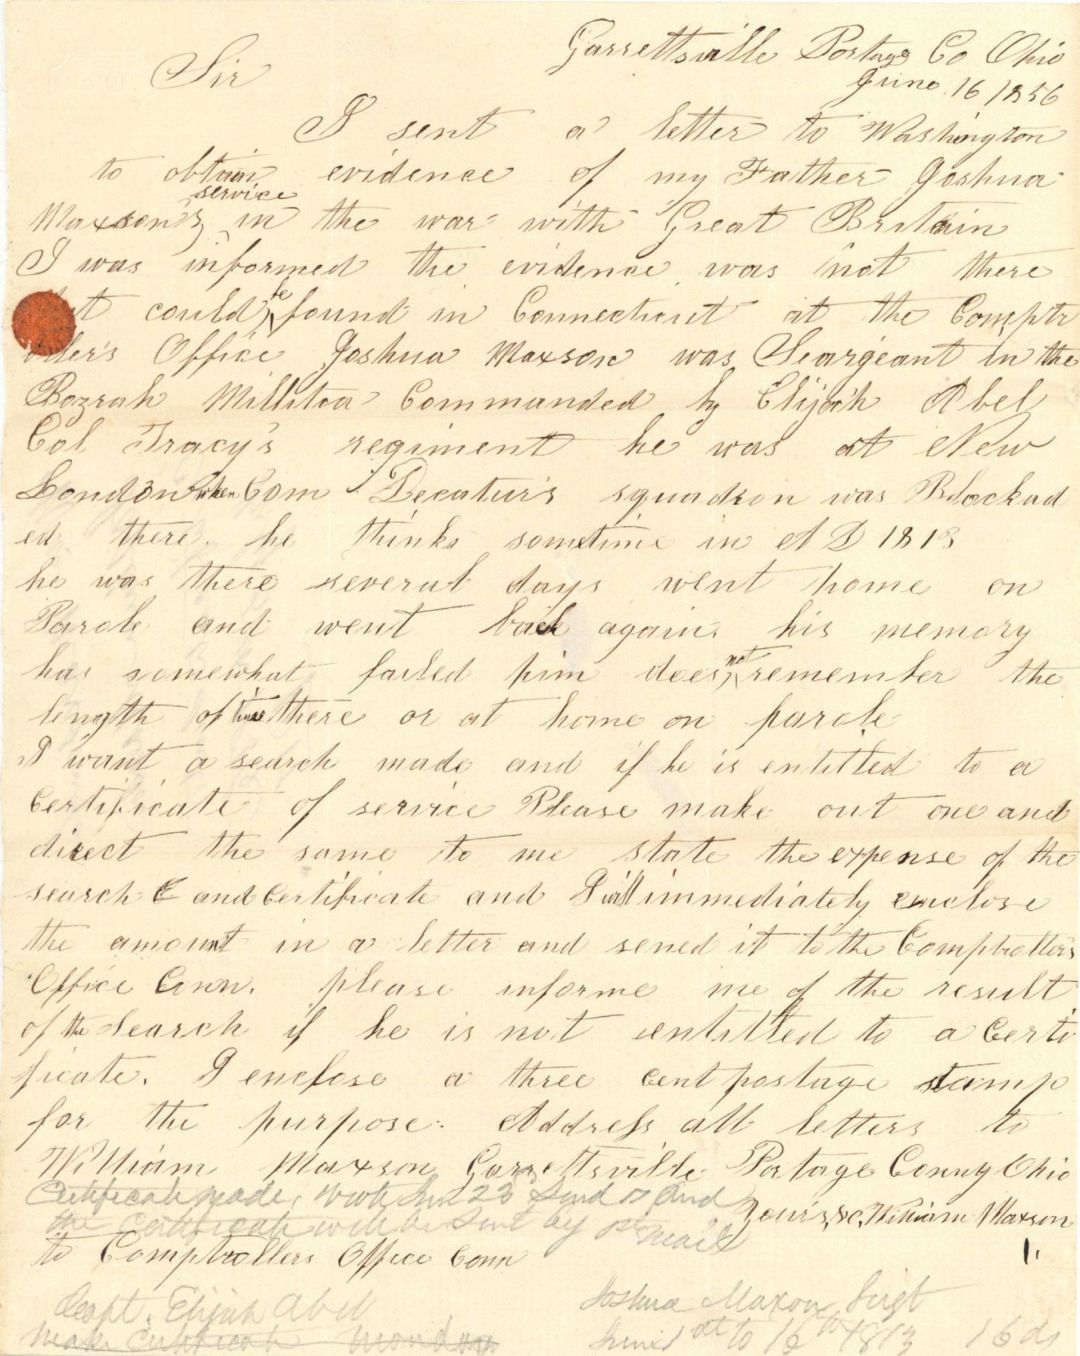 Garrettsville Portage Co Ohio
June 16 1856
Sir
I sent a letter to Washington
to obtain evidence of my Father Joshua
Maxson's service in the war with Great Britain
I was informed the evidence was not there
but could be found in Connecticut at the Comptr
oller's Office Joshua Maxson was Seargeant in the
Bozrah Millitia Commanded by Elijah Abel
Col Tracy's regiment he was at New
London when Com Decatur's squadron was Blockad
ed there. he thinks sometime in A D 1813
he was there several days went home on
Parole and went back again. his memory
has somewhat failed him does not remember the
length of time there or at home on parole
I want a search made and if he is entitled to a
Certificate of service Please make out one and
direct the same to me state the expense of the
search and Certificate and I will immediately enclose
the amount in a letter and sened it to the Comptrollers
Office Conn. please informe me of the result
of the Search if he is not entitled to a Certi
ficate. I enclose a three cent postage stamp
for the purpose. Address all letters to
William Maxson Garrettsville Portage Conny Ohio
Certificate made, wrote Jun 23 Send &
Yours &c. William Maxson
the Certificate will be sent by 1st mail
1.
to Comptrollers Office Conn
Capt. Elijah Abel
Joshua Maxon, Sergt
Make Certificate
June 1st to 16th 1813 16 ds